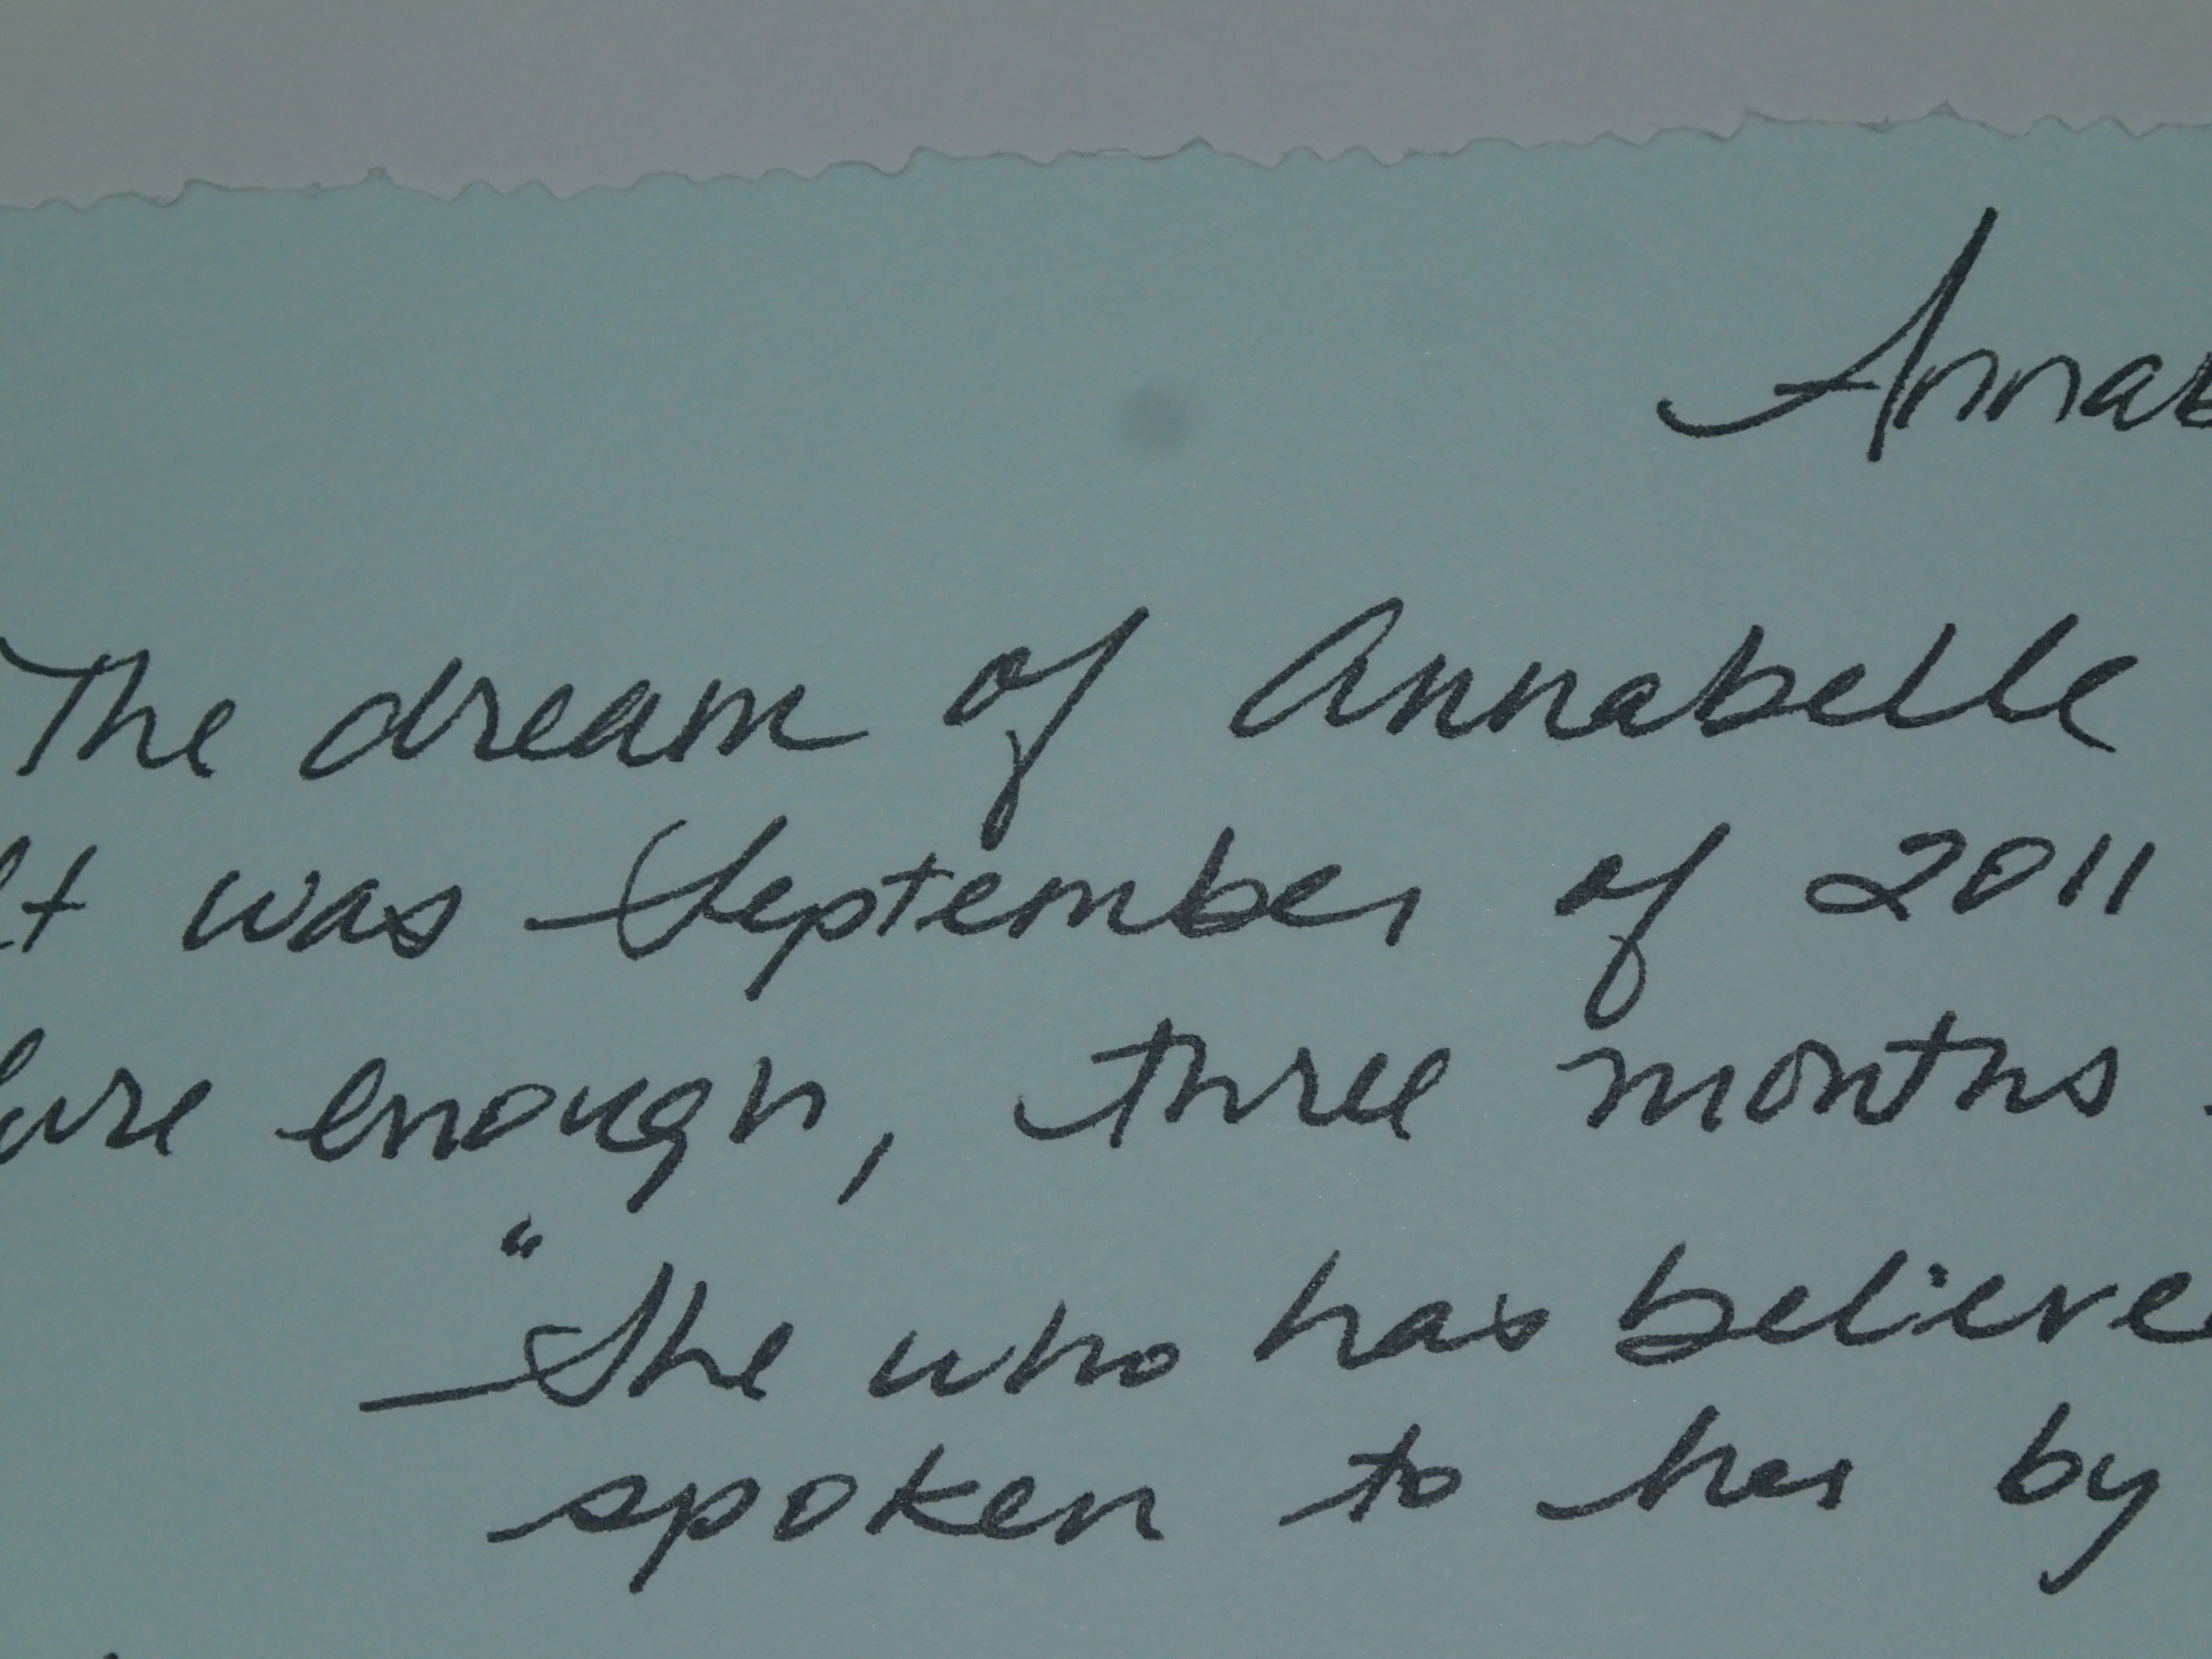 Annab
The dream of Annabelle
It was September of 2011
sure enough, three months
"She who has believe
spoken to her by